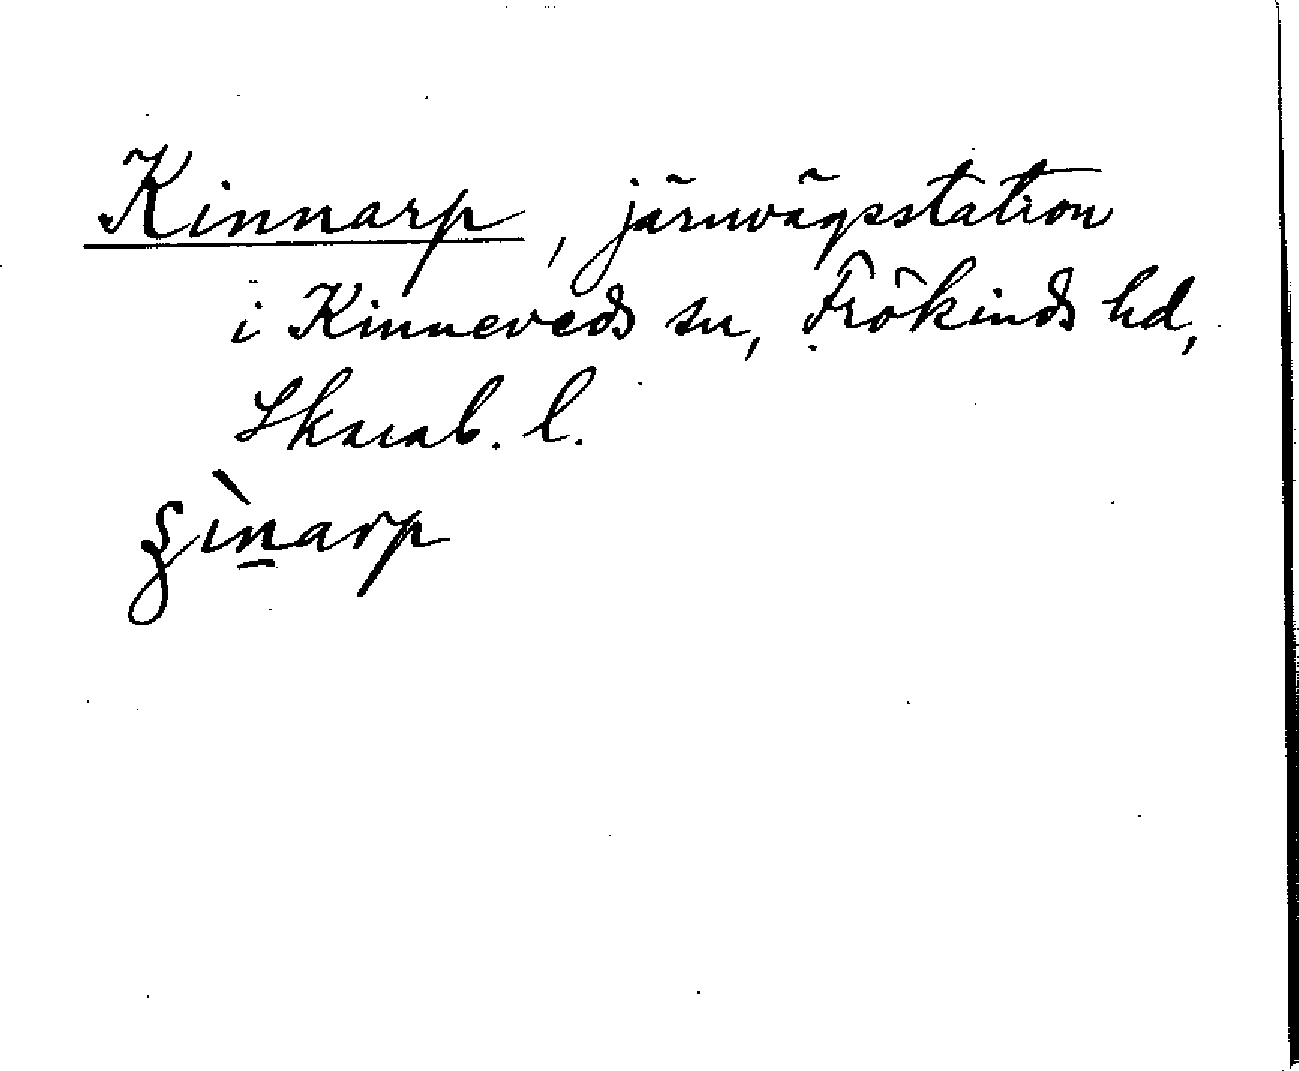 Kinnarp, järnvägsstation
i Kinneveds sn, Frökinds hd,
Skarab. l.